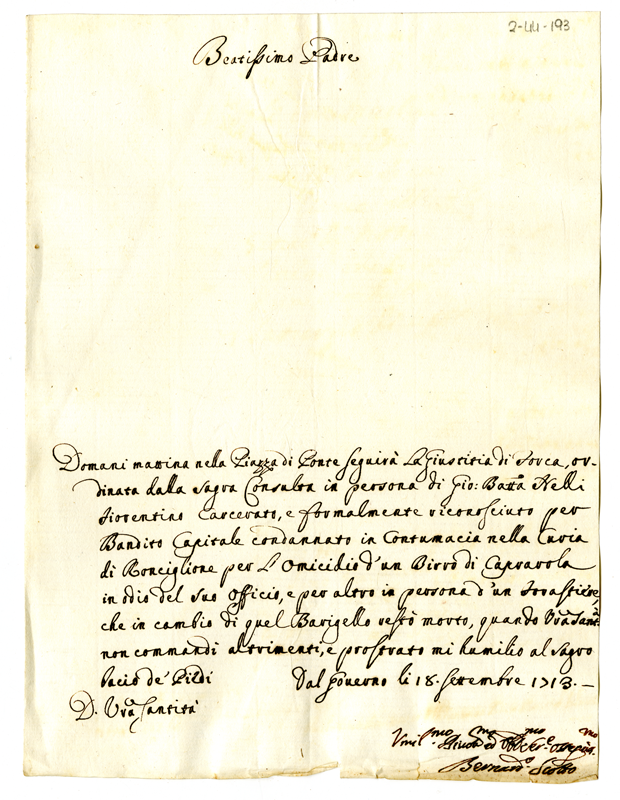 2-44-193
Beatissimo Padre
Domani mattina nella Piazza di Ponte seguirà La Giustitia di Forca, or-
dinata dalla Sagra Consulta in persona di Gio: Batta Nelli
Fiorentino Carcerato, e formalmente riconosciuto per
Bandito Capitale condannato in Contumacia nella Curia
di Ronciglione per L'Omicidio d'un Birro di Capravola
in odio del suo Officio, e per altro in persona d'un Forastiere,
che in cambio di quel Barigello restò morto, quando Vra Santà
non commandi altrimenti, e prostrato mi humilio al Sagro
bacio de' Piedi Dal Governo li 18. Settembre 1713.-
D. Vra Santità
Umilmo ed
Bernardo